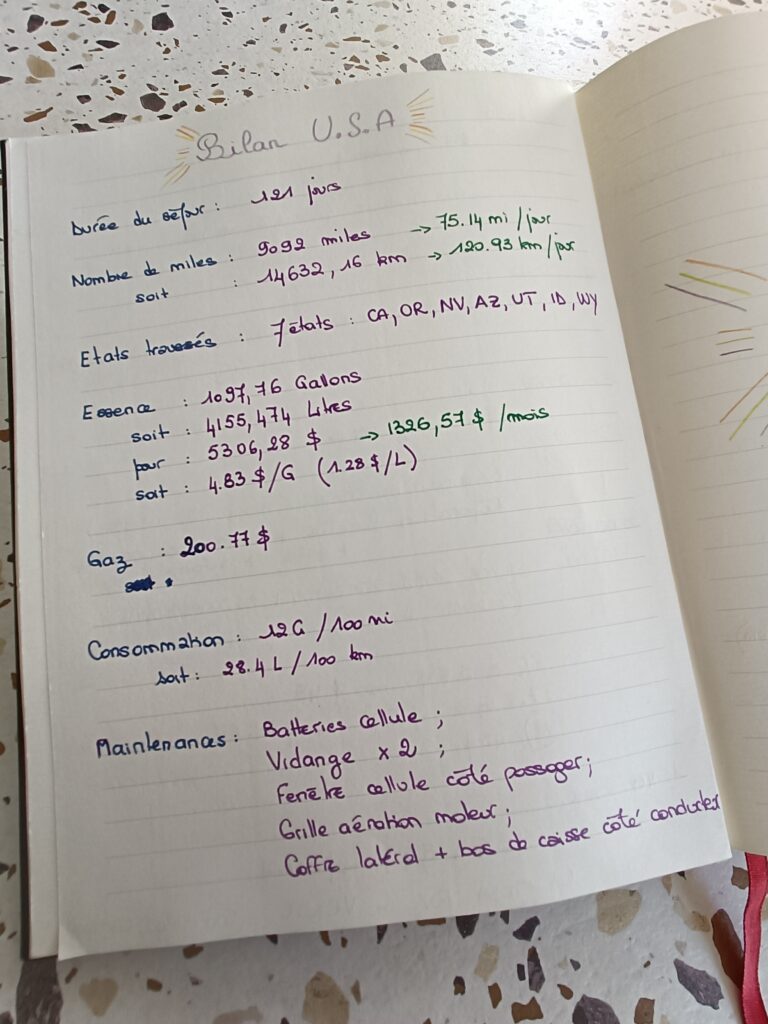 Bilan U.S.A
Durée du séjour : 121 jours
Nombre de miles : 9092 miles → 75.14 mi/jour
soit : 14632,16 km → 120.93 km/jour
Etats traversés : 7 états : CA, OR, NV, AZ, UT, ID, WY
Essence : 1097,76 Galons
soit : 4155,474 Litres
pour : 5306,28 $ → 1326,57 $ /mois
soit : 4.83 $/G (1.28 $/L)
Gaz : 200.77 $
Consommation : 12 G /100 mi
soit : 28.4 L/100 km
Maintenances : Batteries cellule ;
Vidange x 2 ;
Fenêtre cellule côté passager ;
Grille aération moteur ;
Coffre latéral + bas de caisse côté conducteur